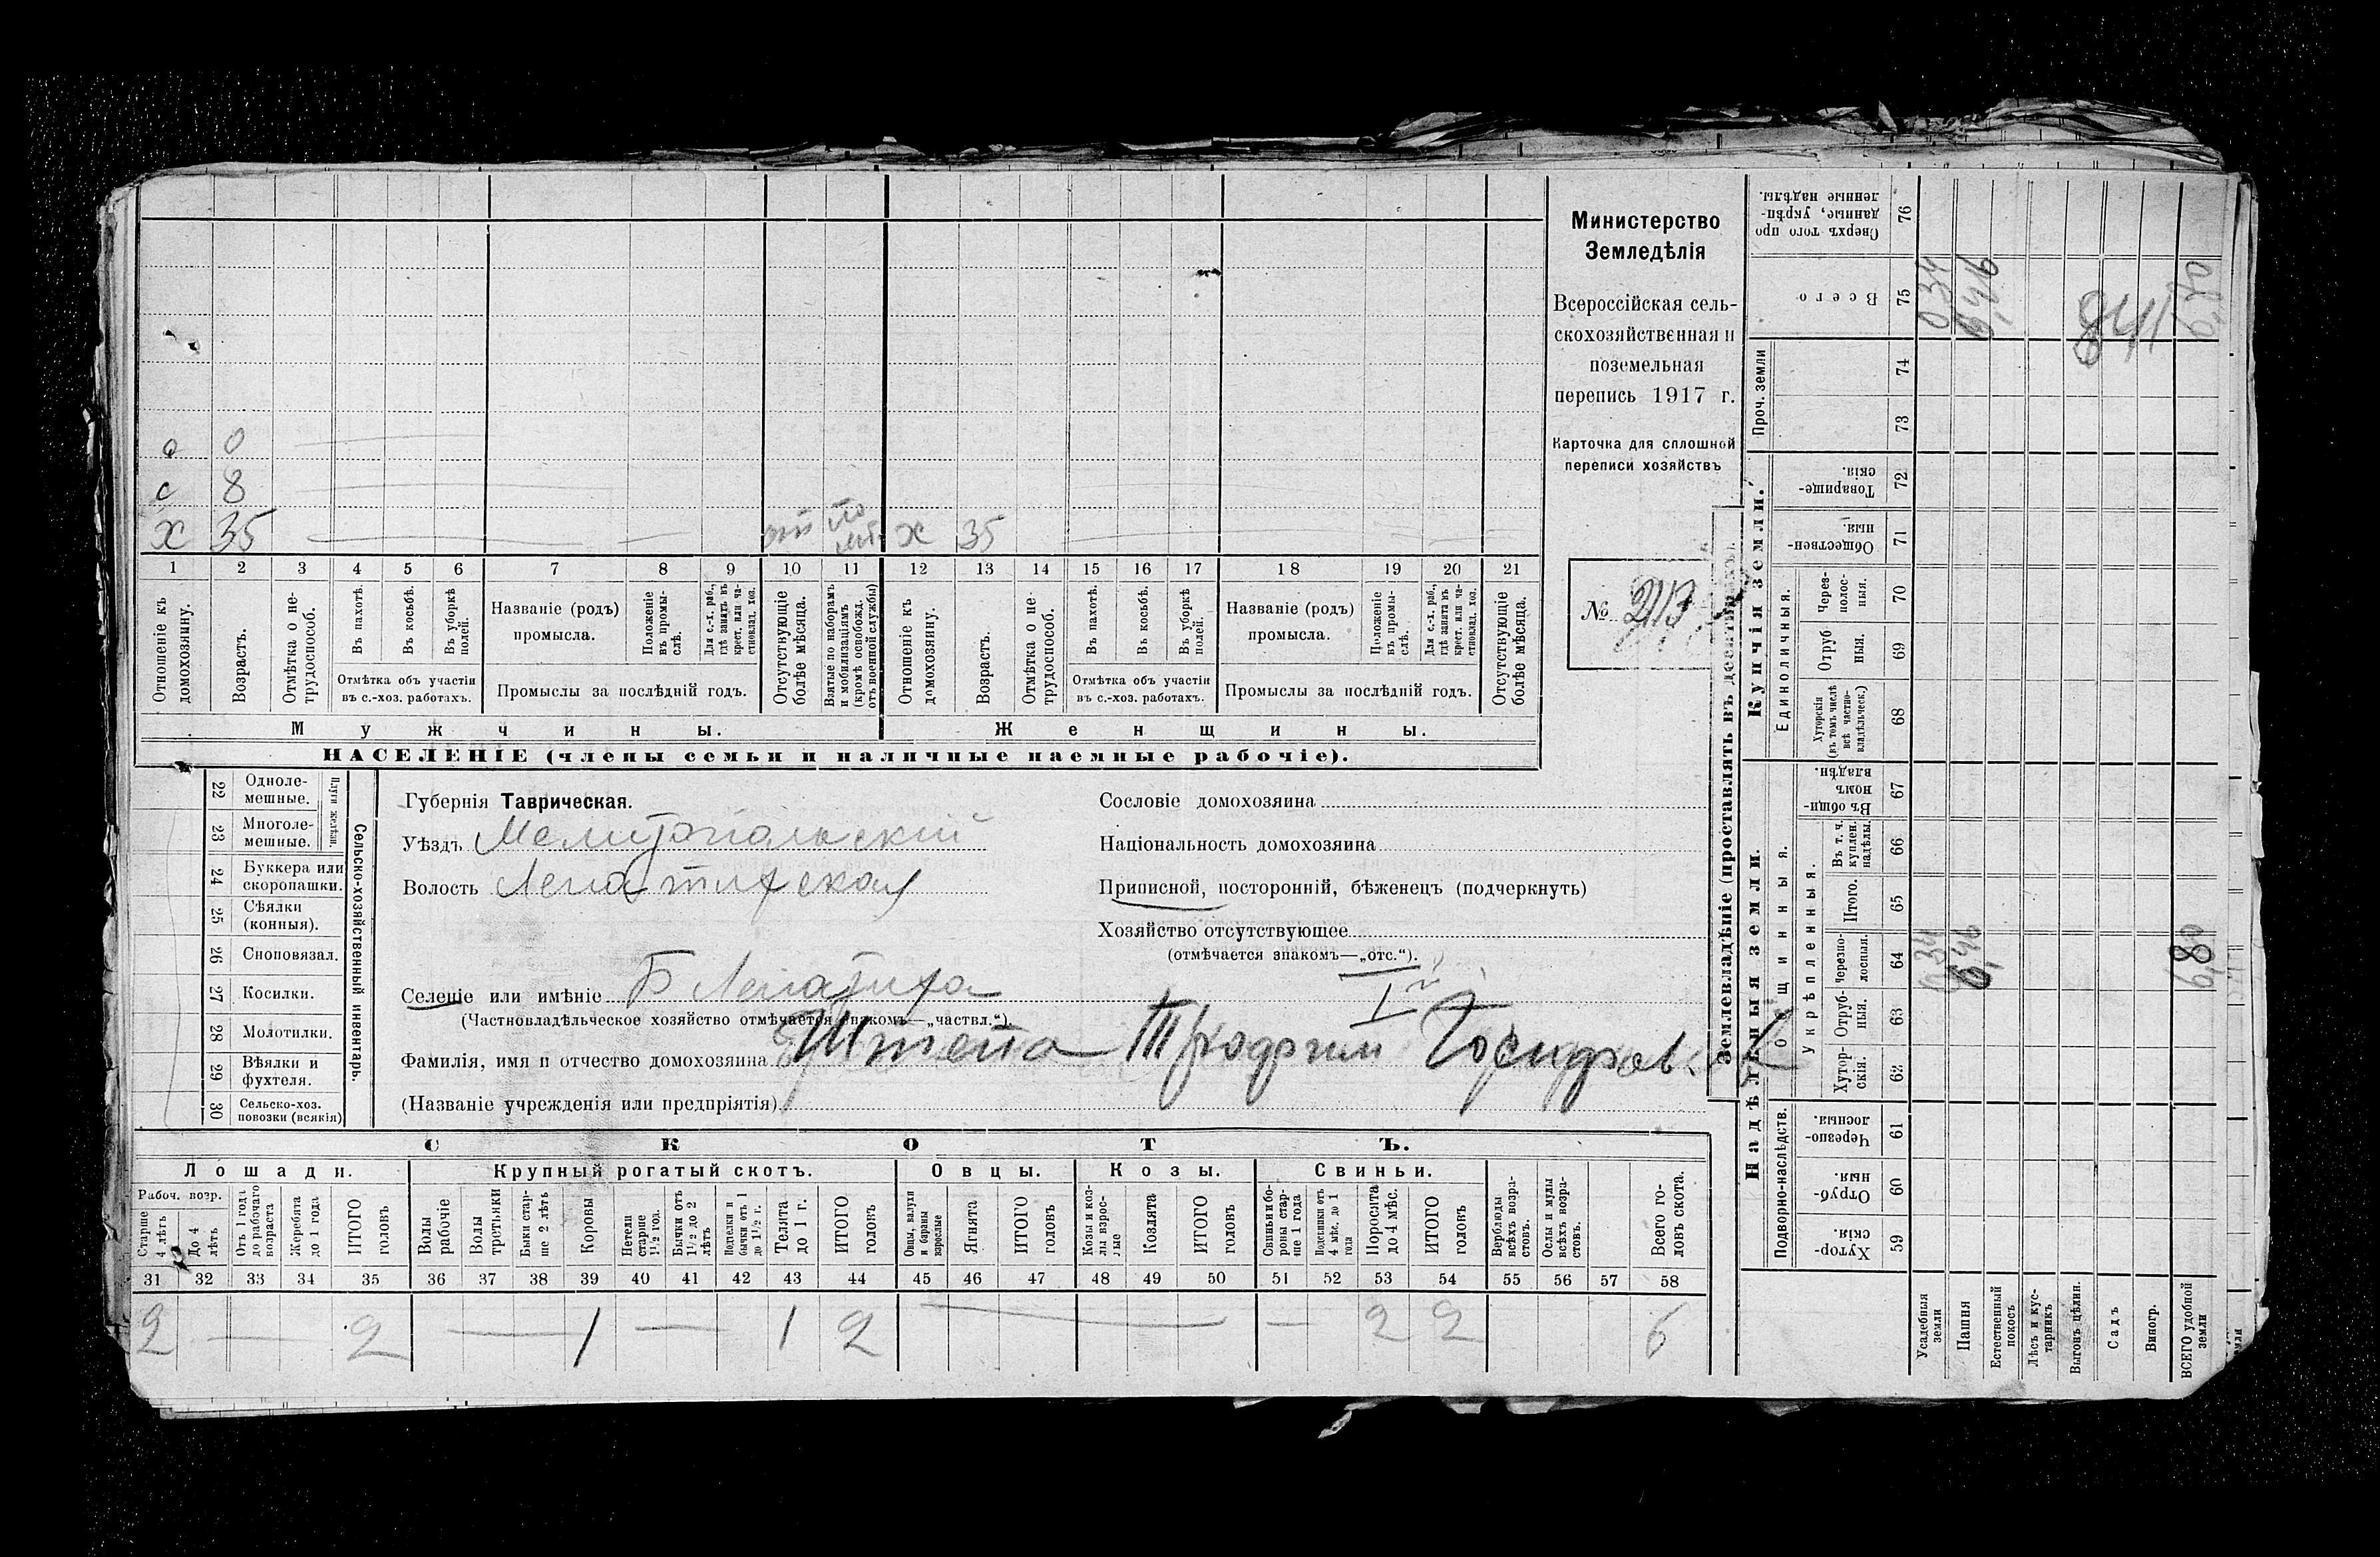 о 0
с 8
х 35 х 35
1 2 3 4 5 6 7 8 9 10 11 12 13 14 15 16 17 18 19 20 21
Отношеніе къ домохозяину.
Возрастъ.
Отмѣтка о нетрудоспособ.
Въ пахотѣ.
Въ косьбѣ.
Въ уборкѣ полей.
Отмѣтка объ участіи
въ с.-хоз. работахъ.
Названіе (родъ)
промысла.
Положеніе въ промыслѣ.
Для с.-х. раб., гдѣ занятъ въ крест. или частновлад. хоз.
Промыслы за послѣдній годъ.
Отсутствующіе болѣе мѣсяца.
Взятые по наборамъ и мобилизаціямъ (кромѣ освобожд. отъ военной службы)
Отношеніе къ домохозяину.
Возрастъ.
Отмѣтка о нетрудоспособ.
Въ пахотѣ.
Въ косьбѣ.
Въ уборкѣ полей.
Отмѣтка объ участіи
въ с.-хоз. работахъ.
Названіе (родъ)
промысла.
Положеніе въ промыслѣ.
Для с.-х. раб., гдѣ занята въ крест. или частновлад. хоз.
Промыслы за послѣдній годъ.
Отсутствующіе болѣе мѣсяца.
Мужчины. Женщины.
НАСЕЛЕНІЕ (члены семьи и наличные наемные рабочіе).
Министерство
Земледѣлія
Всероссійская сель-
скохозяйственная и
поземельная
перепись 1917 г.
Карточка для сплошной
переписи хозяйствъ
№ 2113
22 Одноле-
мешные.
23 Многоле-
мешные.
Плуги желѣзн.
24 Буккера или
скоропашки.
25 Сѣялки
(конныя).
26 Сноповязал.
27 Косилки.
28 Молотилки.
29 Вѣялки и
фухтеля.
30 Сельско-хоз.
повозки (всякія)
Сельско-хозяйственный инвентарь.
Губернія Таврическая.
Уѣздъ Мелитопольскій
Волость Лепатихская
Сословіе домохозяина
Національность домохозяина
Приписной, посторонній, бѣженецъ (подчеркнуть)
Хозяйство отсутствующее
(отмѣчается знакомъ—„отс.“).
Селеніе или имѣніе Б Лепатиха
(Частновладѣльческое хозяйство отмѣчается знакомъ—„частвл.“).
Фамилія, имя и отчество домохозяина Штепа
(Названіе учрежденія или предпріятія)
СКОТЪ.
Лошади. Крупный рогатый скотъ. Овцы. Козы. Свиньи.
Рабоч. возр.
Старше 4 лѣтъ
До 4 лѣтъ
Отъ 1 года до рабочаго возраста
Жеребята до 1 года
ИТОГО головъ
Волы рабочіе
Волы третьяки
Быки старше 2 лѣтъ
Коровы
Нетели старше 1½ год.
Бычки отъ 1½ до 2 лѣтъ
Подтелки и бычки отъ 1 до 1½ г.
Телята до 1 г.
ИТОГО головъ
Овцы, валухи и бараны взрослые
Ягнята
ИТОГО головъ
Козы и козлы взрослые
Козлята
ИТОГО головъ
Свиньи и боровы старше 1 года
Подсвинки отъ 4 мѣс. до 1 года
Поросята до 4 мѣс.
ИТОГО головъ
Верблюды всѣхъ возрастовъ.
Ослы и мулы всѣхъ возрастовъ.
Всего головъ скота.
31 32 33 34 35 36 37 38 39 40 41 42 43 44 45 46 47 48 49 50 51 52 53 54 55 56 57 58
2 — 2 — 1 — 1 2 — — 2 2 6
Землевладѣніе (проставлять въ десятинахъ).
Надѣльныя земли. Купчія земли. Проч. земли
Подворно-наслѣдств.
Общинныя.
Укрѣпленныя.
Единоличныя.
Хуторскія 59
Отрубныя 60
Черезполосныя. 61
Хуторскія. 62
Отрубныя. 63
Черезполосныя. 64
Итого. 65
Въ т. ч. куплен. надѣлы. 66
Въ общинномъ владѣн. 67
Хуторскія (въ томъ числѣ всѣ частновладѣльческ.) 68
Отрубныя. 69
Черезполосныя. 70
Общественныя. 71
Товарищескія. 72
73
74
Всего 75
Сверхъ того проданные, укрѣпленные надѣлы. 76
Усадебныя земли 0,34 0,34
Пашня 6,46 6,46
Естественный покосъ
Лѣсъ и кустарникъ
Выгонъ цѣлин.
Садъ
Виногр.
ВСЕГО удобной земли 6,80 6,80